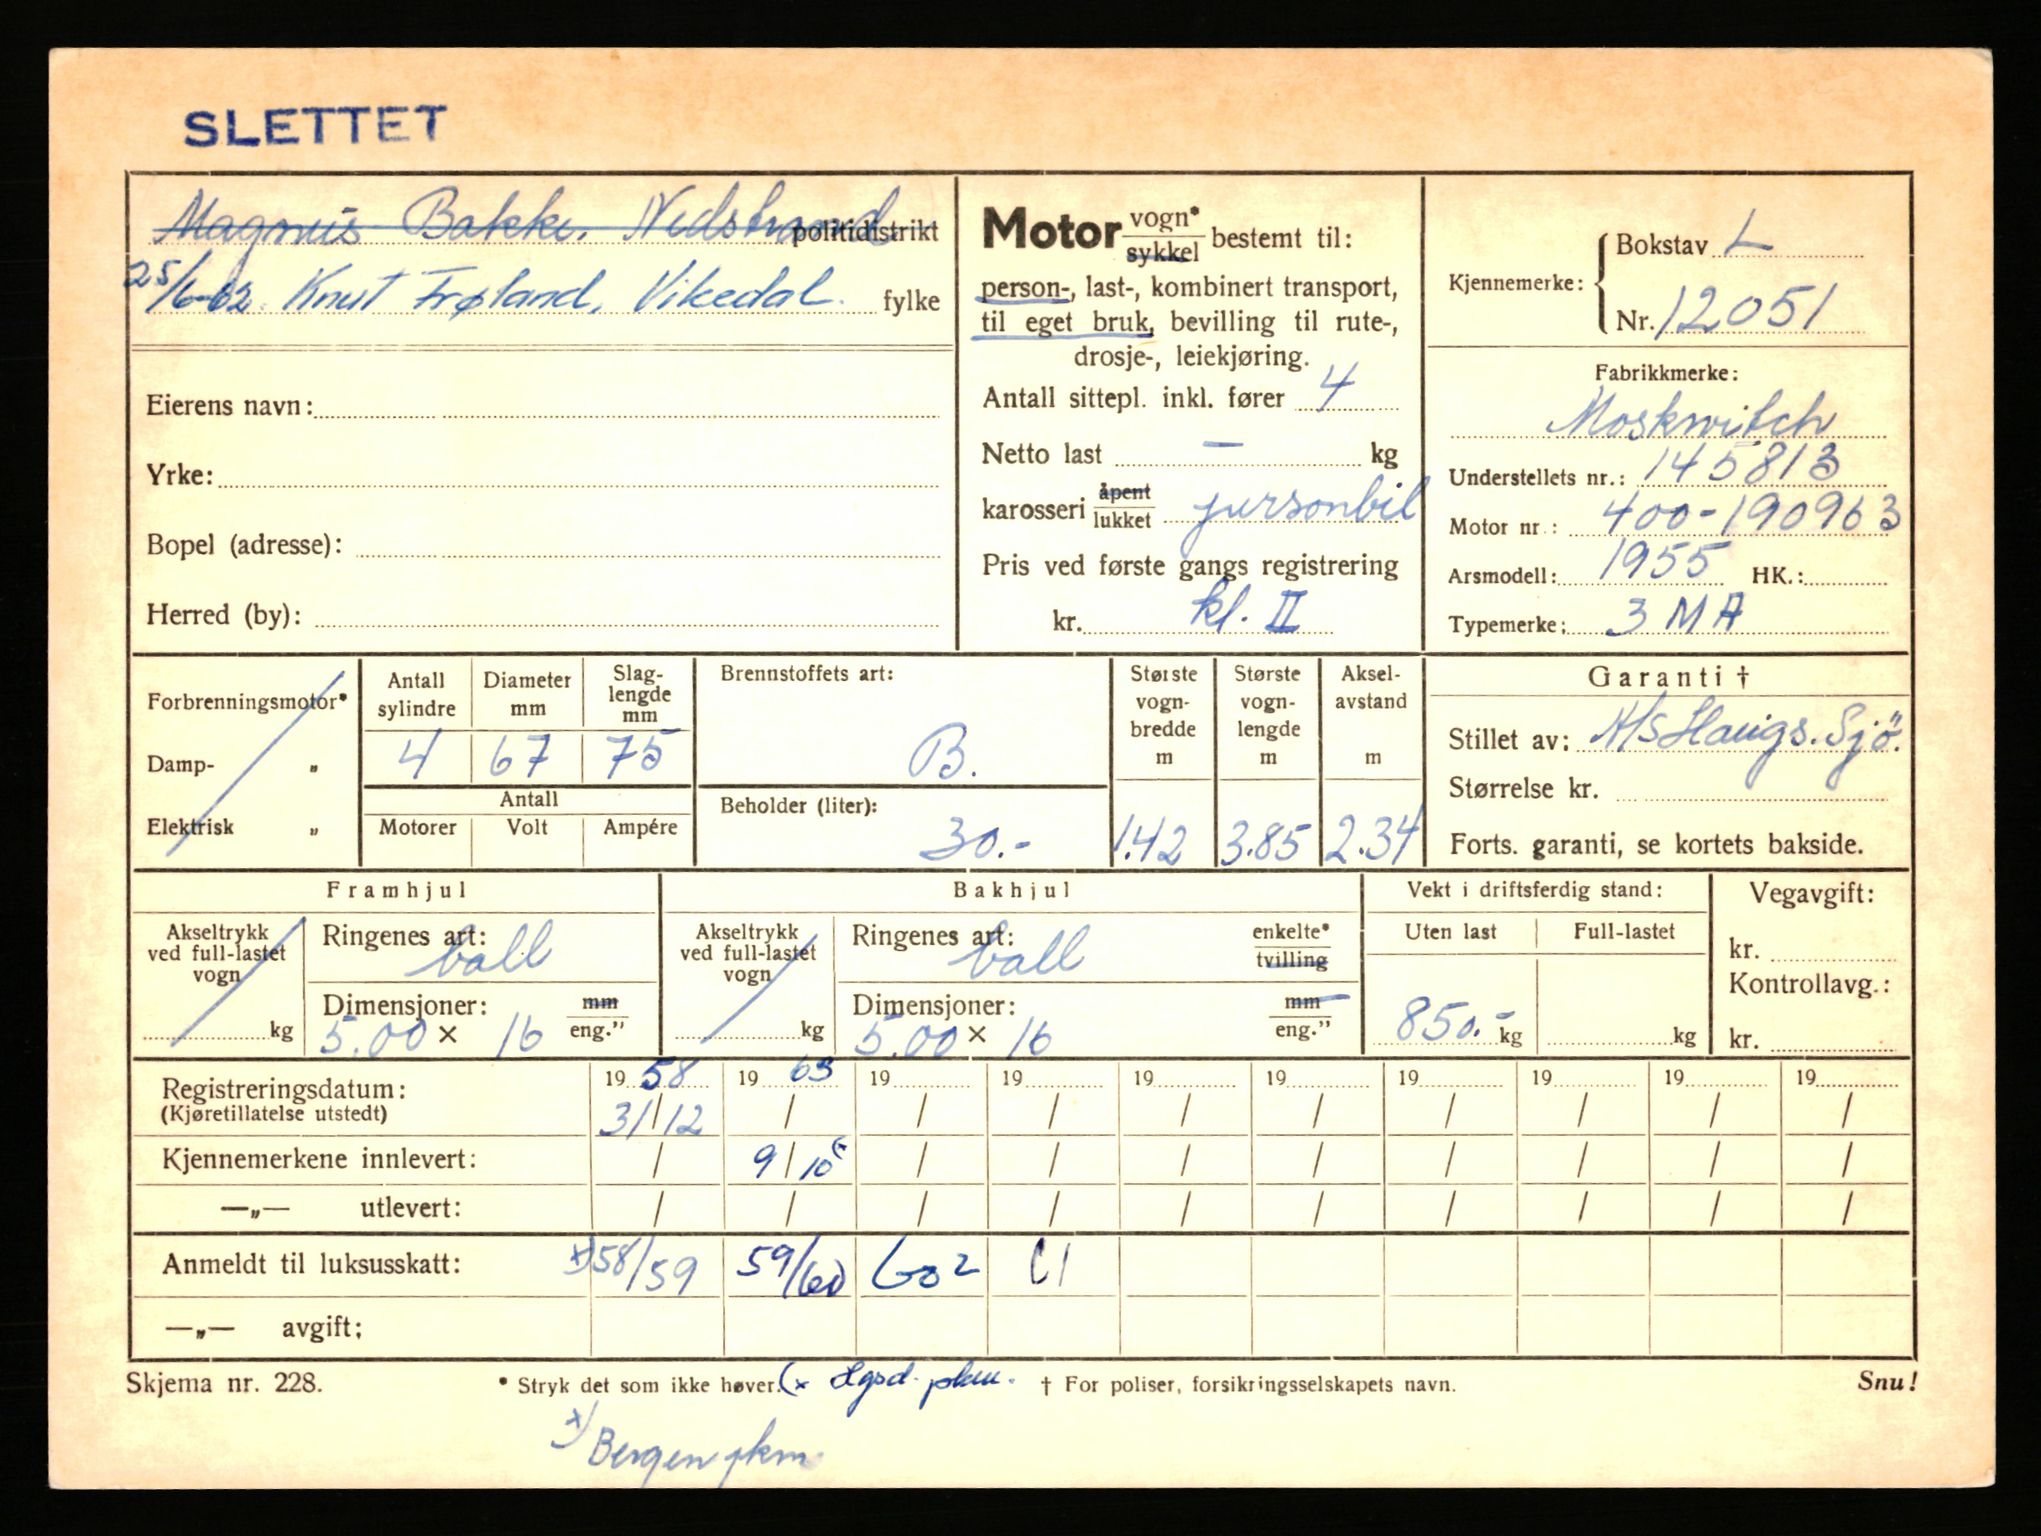 SLETTET
Magnus Bakke, Nedstrand politidistrikt
25/6-62 Knut Frøland, Vikedal. fylke
Eierens navn:
Yrke:
Bopel (adresse):
Herred (by):
Motor vogn* sykkel bestemt til:
person-, last-, kombinert transport,
til eget bruk, bevilling til rute-,
drosje-, leiekjøring.
Antall sittepl. inkl. fører 4
Netto last — kg
karosseri åpent lukket personbil
Pris ved første gangs registrering
kr. kl. II
Kjennemerke: Bokstav L
Nr. 12051
Fabrikkmerke:
Moskwitch
Understellets nr.: 145813
Motor nr.: 400-190963
Arsmodell: 1955 HK.:
Typemerke: 3 MA
Forbrenningsmotor*
Damp- „
Elektrisk „
Antall sylindre Diameter mm Slag-lengde mm
4 67 75
Antall
Motorer Volt Ampére
Brennstoffets art:
B.
Beholder (liter):
30.-
Største vogn-bredde m Største vogn-lengde m Aksel-avstand m
1.42 3.85 2.34
Garanti †
Stillet av: A/S Haugs. Sjö.
Størrelse kr.
Forts. garanti, se kortets bakside.
Framhjul
Akseltrykk ved full-lastet vogn kg
Ringenes art: ball
Dimensjoner: mm eng."
5.00 x 16
Bakhjul
Akseltrykk ved full-lastet vogn kg
Ringenes art: ball enkelte* tvilling
Dimensjoner: mm eng."
5.00 x 16
Vekt i driftsferdig stand:
Uten last Full-lastet
850.- kg kg
Vegavgift:
kr.
Kontrollavg.:
kr.
Registreringsdatum: 19 58 19 63 19 19 19 19 19 19 19 19
(Kjøretillatelse utstedt) 31/12 / / / / / / / / /
Kjennemerkene innlevert: / 9/10 / / / / / / / /
—„— utlevert: / / / / / / / / / /
Anmeldt til luksusskatt: x) 58/59 59/60
—„— avgift:
Skjema nr. 228. * Stryk det som ikke høver. (x Hgsd. pkm. † For poliser, forsikringsselskapets navn. Snu!
x) Bergen pkm